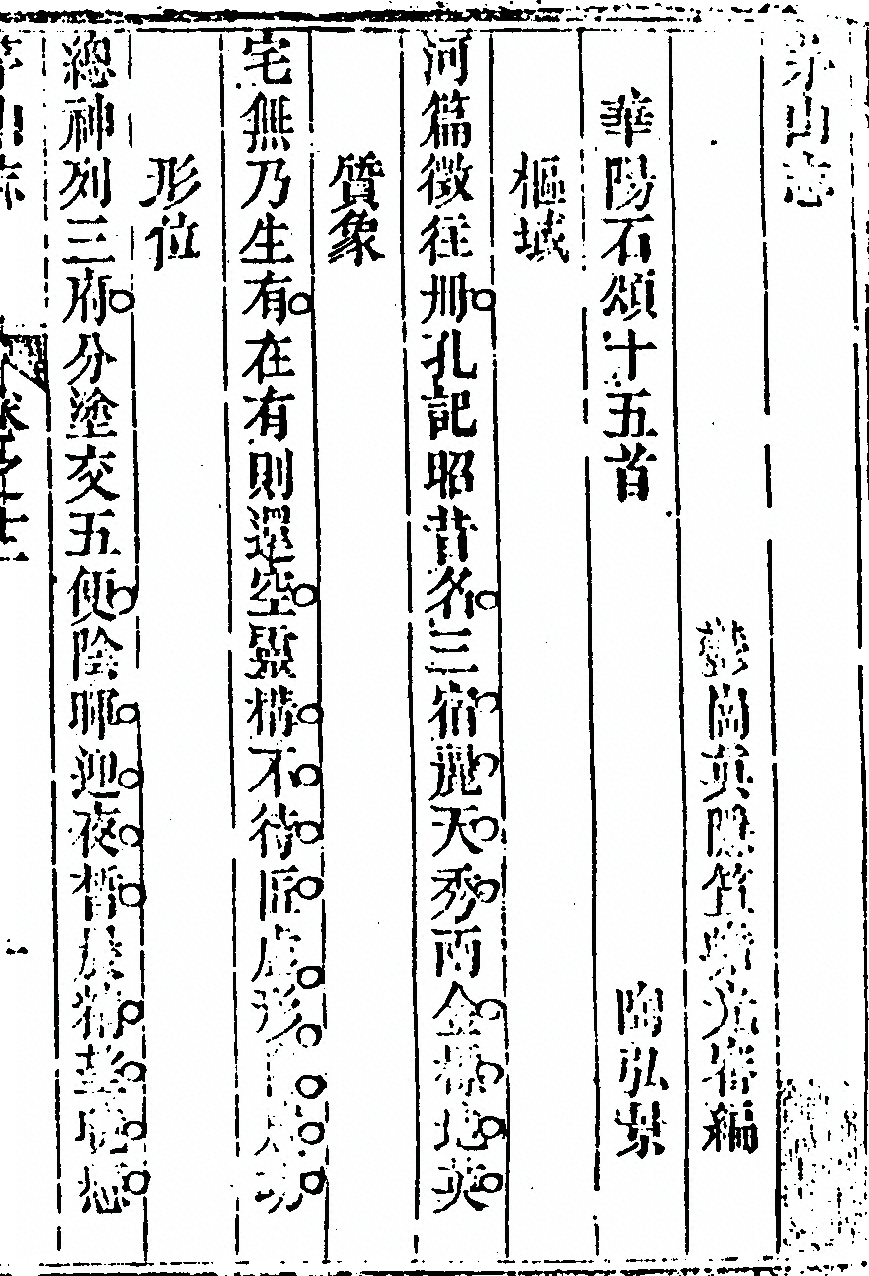 茅山志
欝岡真隱笪蟾光審編
華陽石頌十五首　陶弘景
樞域
河篇徵往冊孔記昭昔名三宿麗天秀兩金標地英
質象
宅無乃生有在有則還空靈構不待匠虛形自成功
形位
總神列三府分塗交五便陰暉迎夜晢晨精望曉懸
茅山志　卷之　一